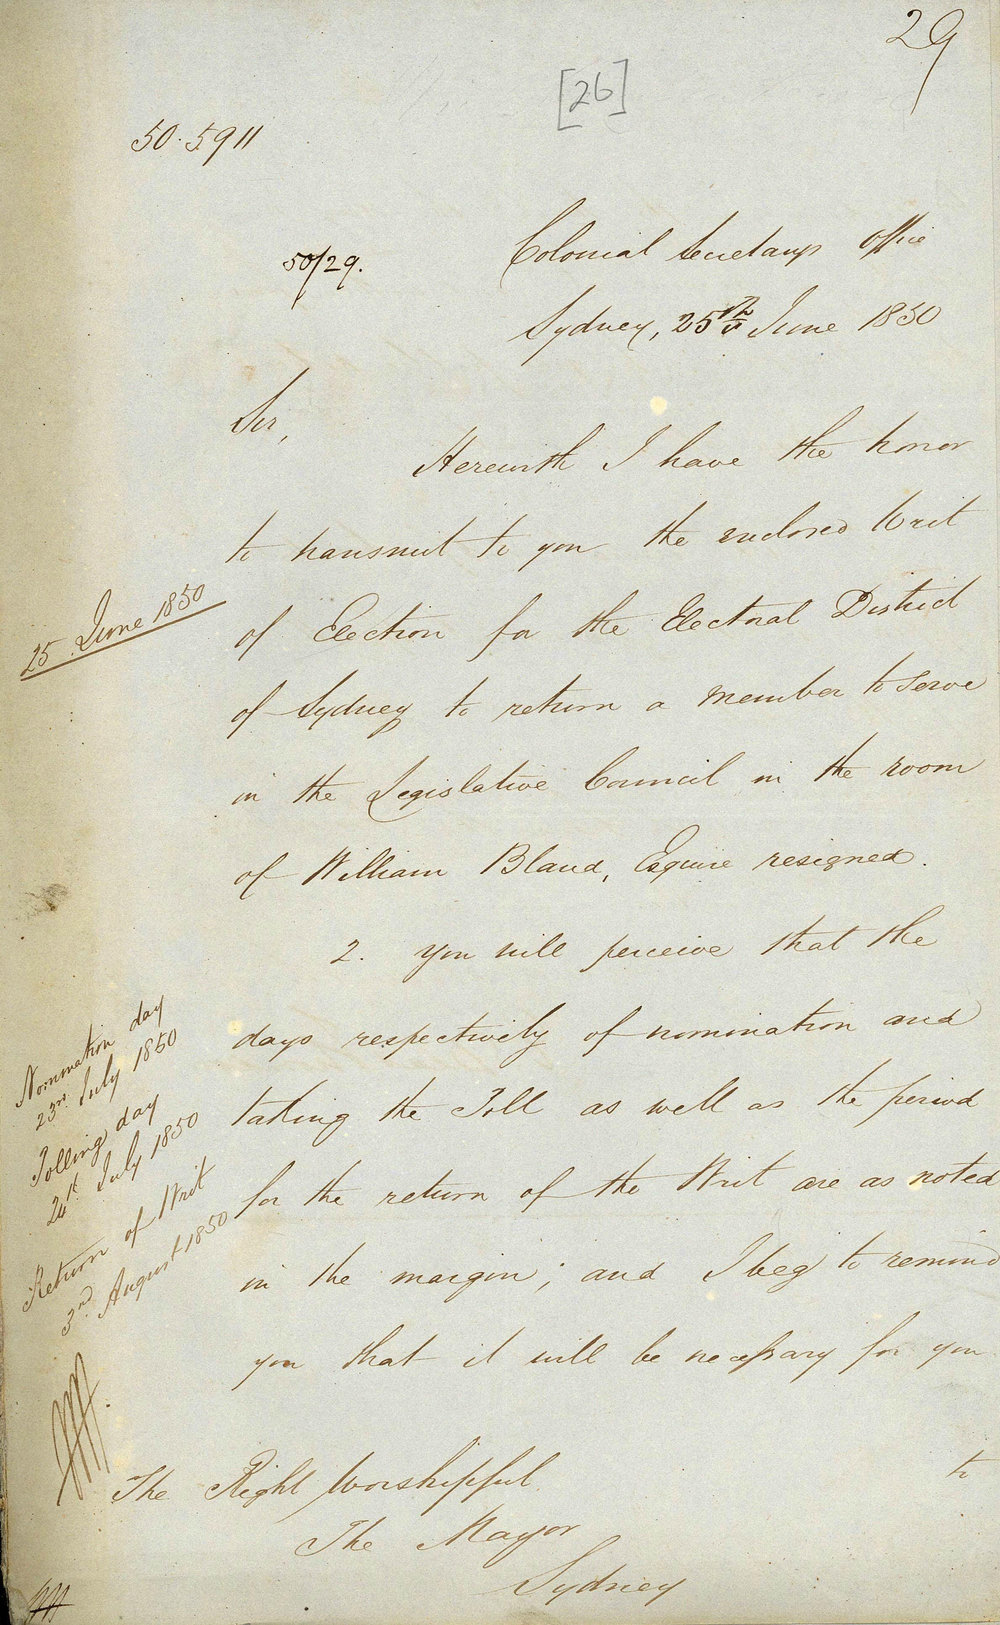 29
[26]
50.5911
50/29.
Colonial Secretarys Office
Sydney, 25th June 1850
Sir,
Herewith I have the honor
to transmit to you the enclosed Writ
25 June 1850
of Election for the Electoral District
of Sydney to return a Member to serve
in the Legislative Council in the room
of William Bland, Esquire resigned.
2. You will perceive that the
days respectively of nomination and
taking the Poll as well as the period
for the return of the Writ are as noted
in the margin; and I beg to remind
you that it will be necessary for you
to
Nomination day
23rd July 1850
Polling day
24th July 1850
Return of Writ
3rd August 1850
The Right Worshipful
The Mayor
Sydney